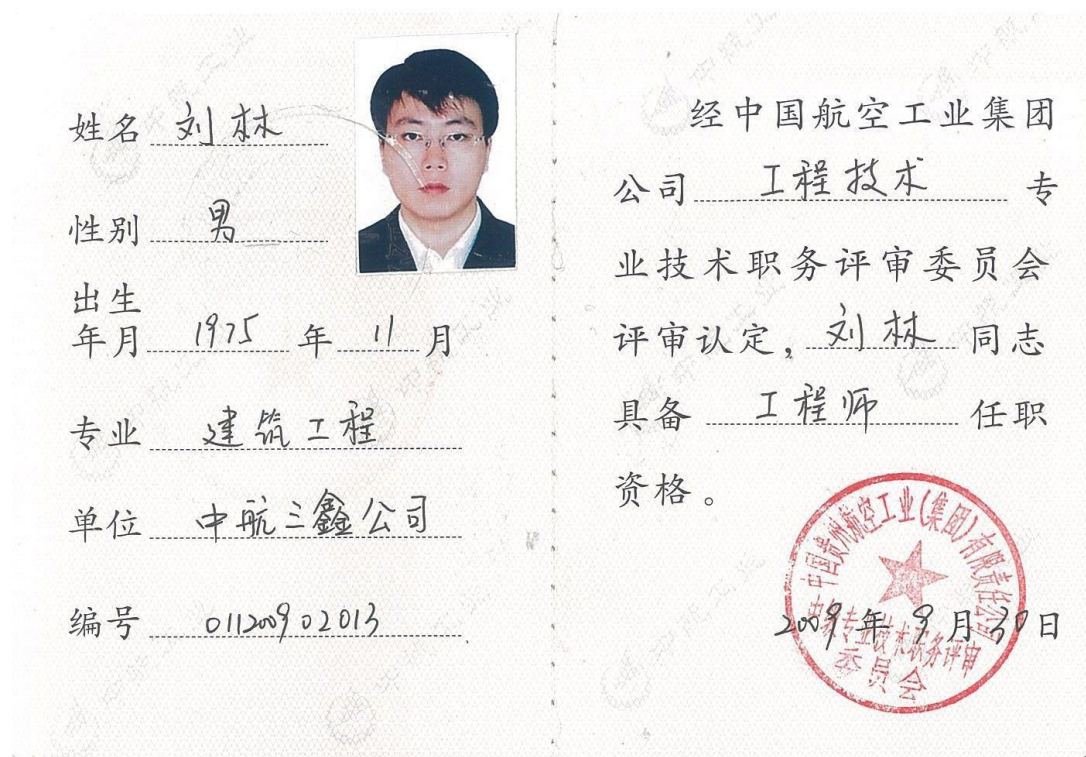 姓名 刘林
性别 男
出生
年月 1975 年 11 月
专业 建筑工程
单位 中航三鑫公司
编号 011200902013
经中国航空工业集团
公司 工程技术 专
业技术职务评审委员会
评审认定，刘林 同志
具备 工程师 任职
资格。
中国贵州航空工业(集团)有限责任公司
中级专业技术职务评审
委员会
2009年9月30日